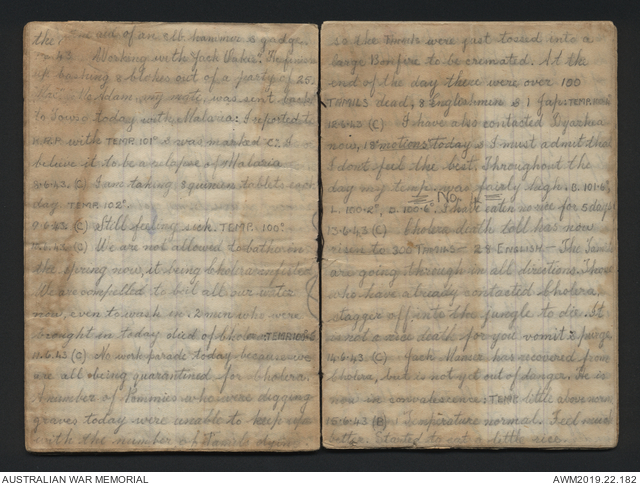 the aid of an 8lb hammer & gadge.
43. Working with Jack Oakes. He finished
up bashing 2 blokes out of a party of 25.
McAdam, my mate, was sent back
to today with Malaria: I reported to
R.A.P. with TEMP. 101° & was marked C. I
believe it to be a relapse of Malaria.
8.6.43. (C) I am taking 3 quinine tablets each
day. TEMP. 102°.
9.6.43 (C) Still feeling sick. TEMP. 100°.
(C) We are not allowed to bathe in
the Spring now, it being cholera infested.
We are compelled to boil all our water
now, even to wash in. 2 men who were
brought in today died of cholera. TEMP.
11.6.43 (C) No work parade today because we
are all being quarantined for cholera.
A number of Pommies who were digging
graves today were unable to keep up
with the number of Tamils dying
so the TAMILS were just tossed into a
large Bonfire to be cremated. At the
end of the day there were over 100
TAMILS dead, 8 Englishmen & 1 Jap: TEMP.
12.6.43 (C) I have also contacted Diyarhea
now, 18 motions today & I must admit that
I don't feel the best. Throughout the
day my temp. was fairly high, B. 101.6°,
L. 100.2°, D. 100.6°. I have eaten no rice for 5 days.
No.
13.6.43 (C) Cholera death toll has now
risen to 300 TAMILS – 28 ENGLISH – The Tamils
are going through in all directions. Those
who have already contacted cholera,
stagger off into the jungle to die. It
is not a nice death for you vomit & purge.
14.6.43 (C) Jack has recovered from
cholera, but is not yet out of danger. He is
now in convalescence: TEMP. little above norm.
15.6.43 (B) Temperature normal. Feel much
better. Started to eat a little rice.
AUSTRALIAN WAR MEMORIAL
AWM2019.22.182